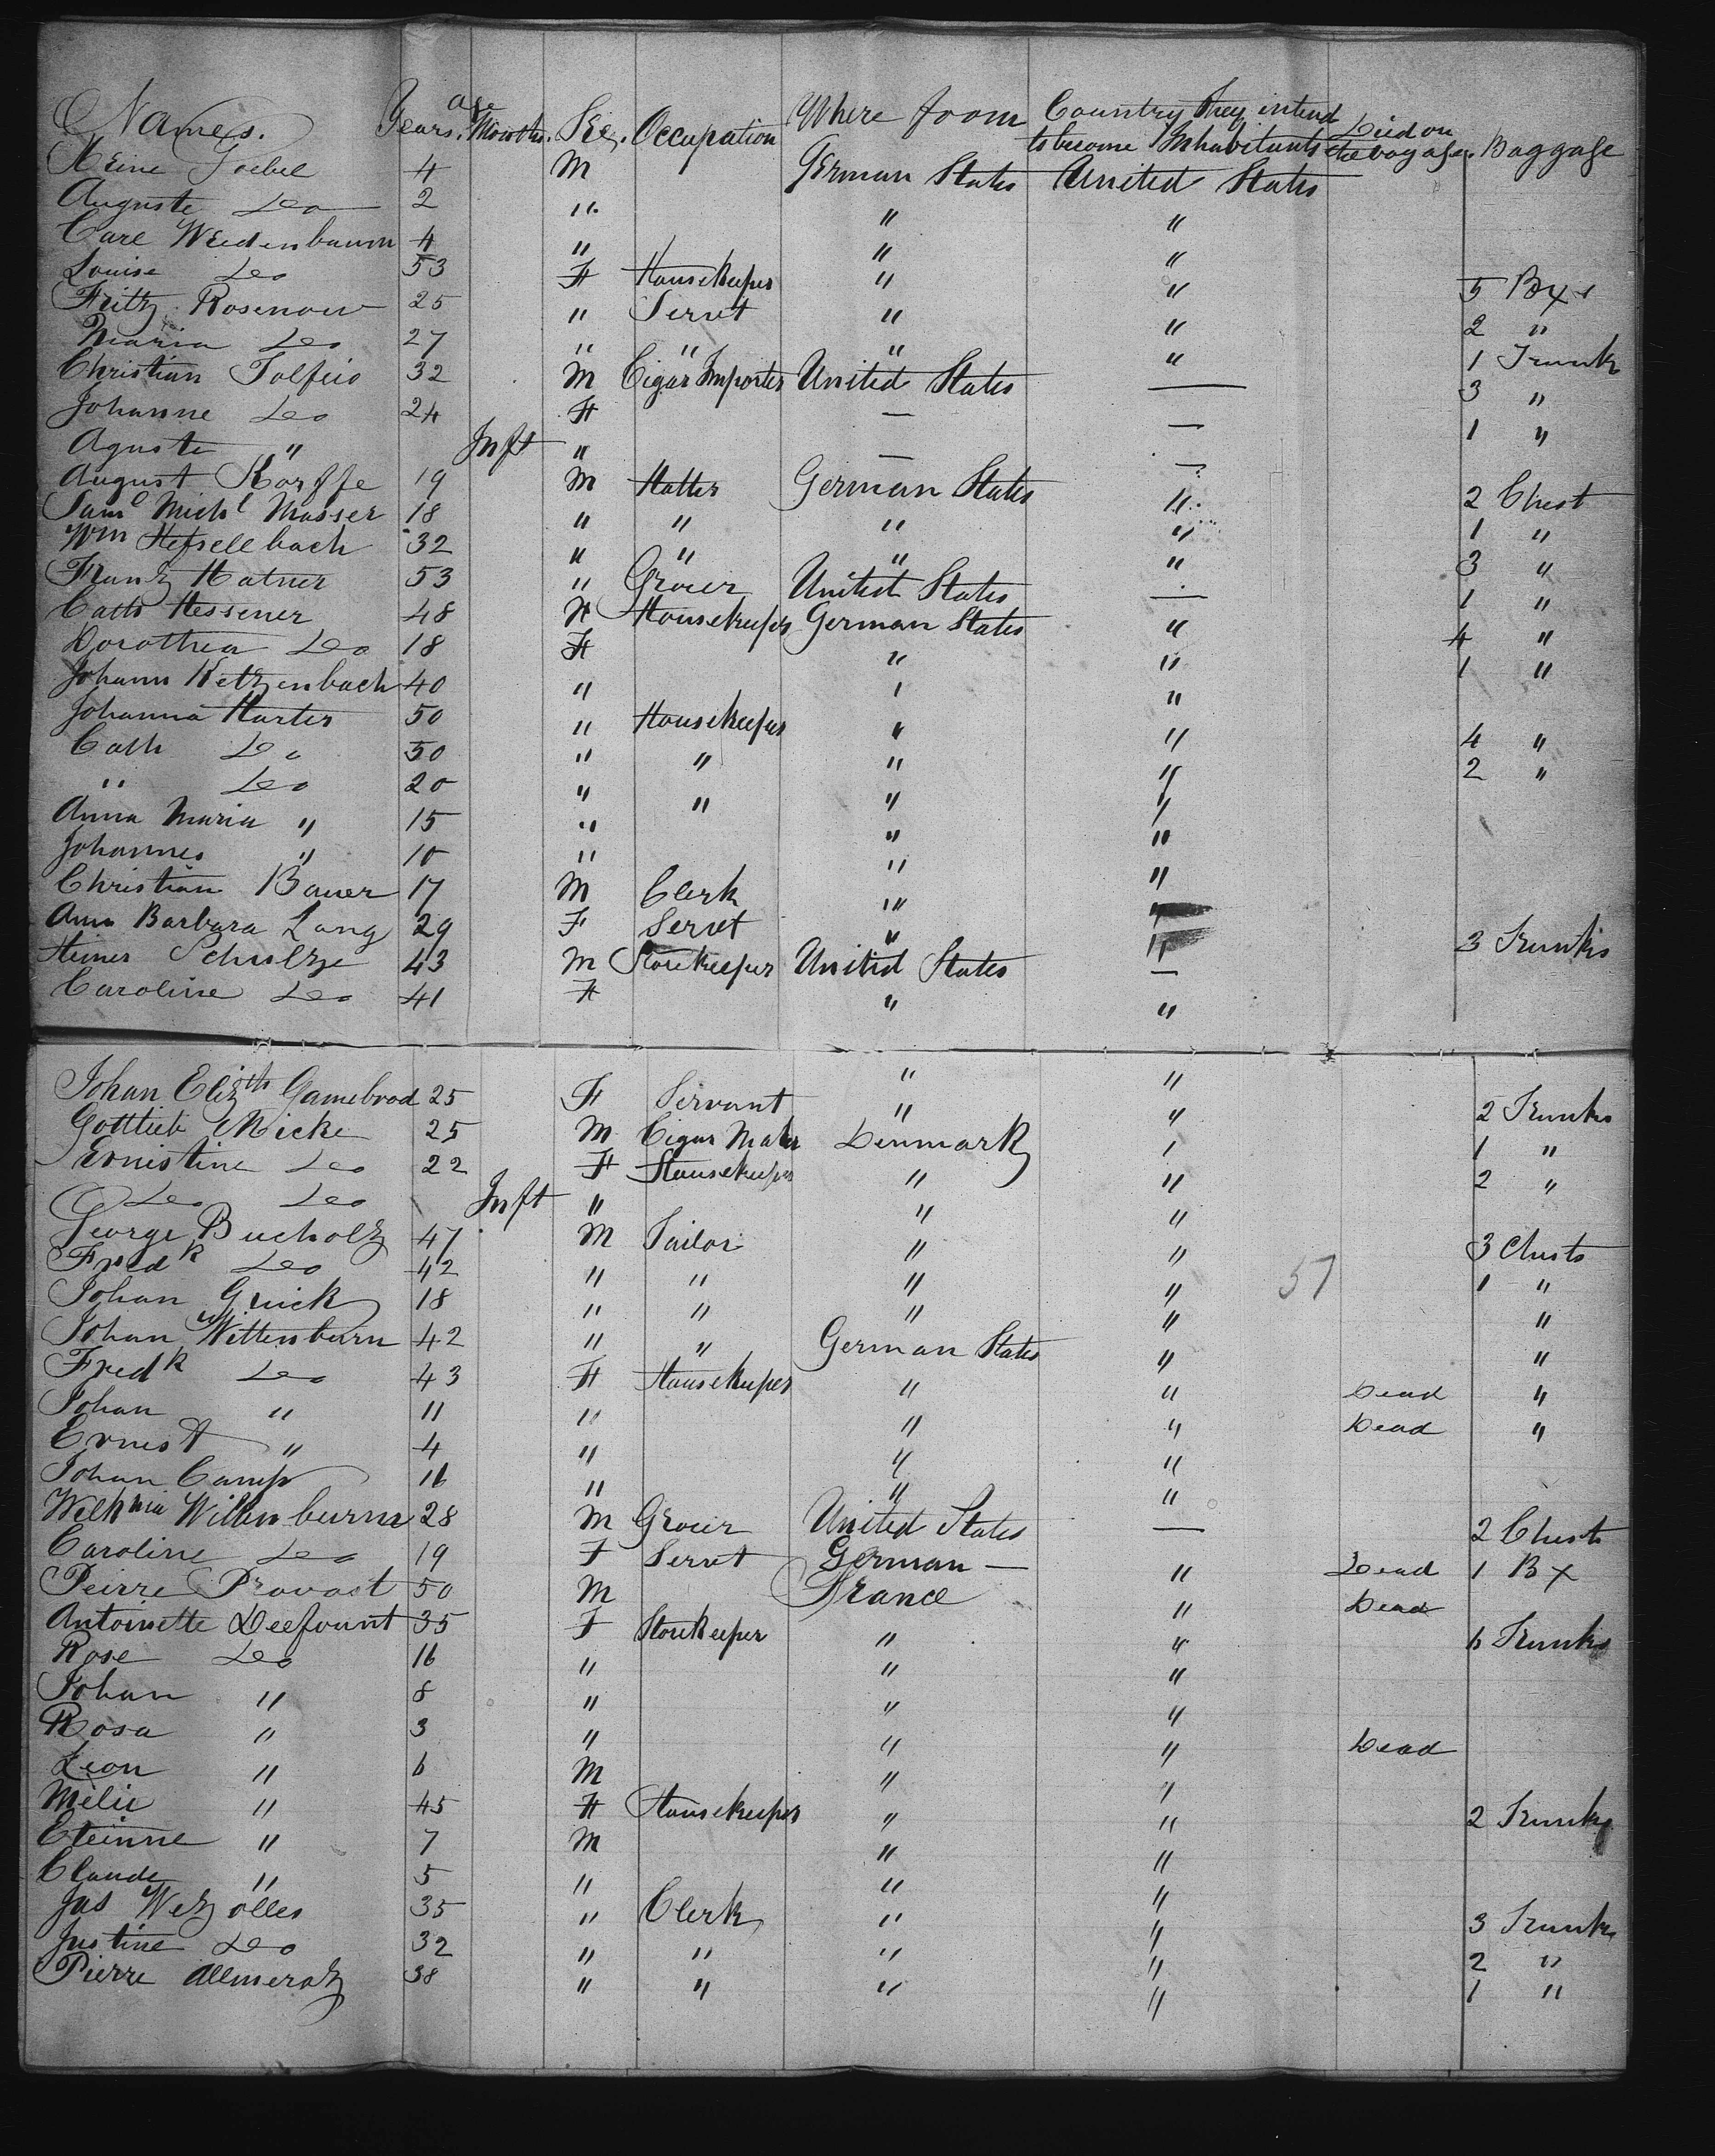 Names. Age Years. Months. Sex. Occupation Where from Country they intend to become Inhabitants Died on the voyage. Baggage
Heine Goebel 4 M German States United States
Auguste Do 2 " " "
Carl Weidenbaum 4 " " "
Louise Do 53 F Housekeeper " " 5 Bxs
Fritz Rosenow 25 " Servt " " 2 "
Maria Do 27 " " " " 1 Trunk
Christian 32 M Cigar Importer United States — 3 "
Johanne Do 24 F — — 1 "
Aguste " Inft " — —
August Korffe 19 M Hatter German States " 2 Chest
Saml Michl Masser 18 " " " " 1 "
Wm Hesselbach 32 " " " " 3 "
Frantz Hatner 53 " Grocer United States — 1 "
Cath Hessener 48 F Housekeeper German States " 4 "
Dorothea Do 18 F " " 1 "
Johann Ketzenbach 40 " " "
Johanna Harter 50 " Housekeeper " " 4 "
Cath Do 50 " " " " 2 "
" Do 20 " " " "
Anna Maria " 15 " " "
Johannes " 10 " " "
Christian Bauer 17 M Clerk " "
Ann Barbara Lang 29 F Servt " " 3 Trunks
Heiner Schultze 43 M Storekeeper United States —
Caroline Do 41 F " "
Johan Elizth Gamebrod 25 F Servant " " 2 Trunks
Gottlieb Micke 25 M Cigar Maker Denmark " 1 "
Ernestine Do 22 F Housekeeper " " 2 "
Do Do Inft " " "
George Bucholtz 47 M Tailor " " 3 Chests
Fredk Do 42 " " " " 1 "
57
Johan Guick 18 " " " " "
Johan Wittenburn 42 " " German States " "
Fredk Do 43 F Housekeeper " " Dead "
Johan " 11 " " " Dead "
Ernest " 4 " " "
Johan Camp 16 " " "
Welhmia Wittenburn 28 M Grocer United States — 2 Chests
Caroline Do 19 F Servt German — " Dead 1 Bx
Peirre Provost 50 M France " Dead
Antoinette Deefount 35 F Storekeeper " " 6 Trunks
Rose Do 16 " " "
Johan " 8 " " "
Rosa " 3 " " " Dead
Leon " 6 M " "
Melie " 45 F Housekeeper " " 2 Trunks
Eteinne " 7 M " "
Claude " 5 " " "
Jas Wetzolles 35 " Clerk " " 3 Trunks
Justine Do 32 " " " " 2 "
Pierre Allmeratz 38 " " " " 1 "